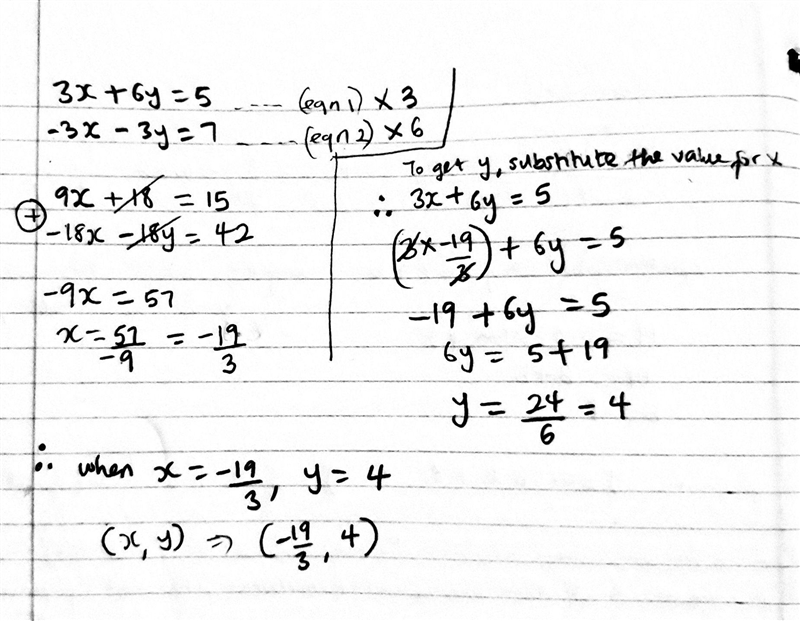 3x + 6y = 5 ---- (eqn 1) × 3
-3x - 3y = 7 ---- (eqn 2) × 6
9x + 18 = 15
(+)
-18x - 18y = 42
-9x = 57
x = 57/-9 = -19/3
To get y, substitute the value for x
∴ 3x + 6y = 5
(3 × -19/3) + 6y = 5
-19 + 6y = 5
6y = 5 + 19
y = 24/6 = 4
∴ when x = -19/3, y = 4
(x, y) ⇒ (-19/3, 4)